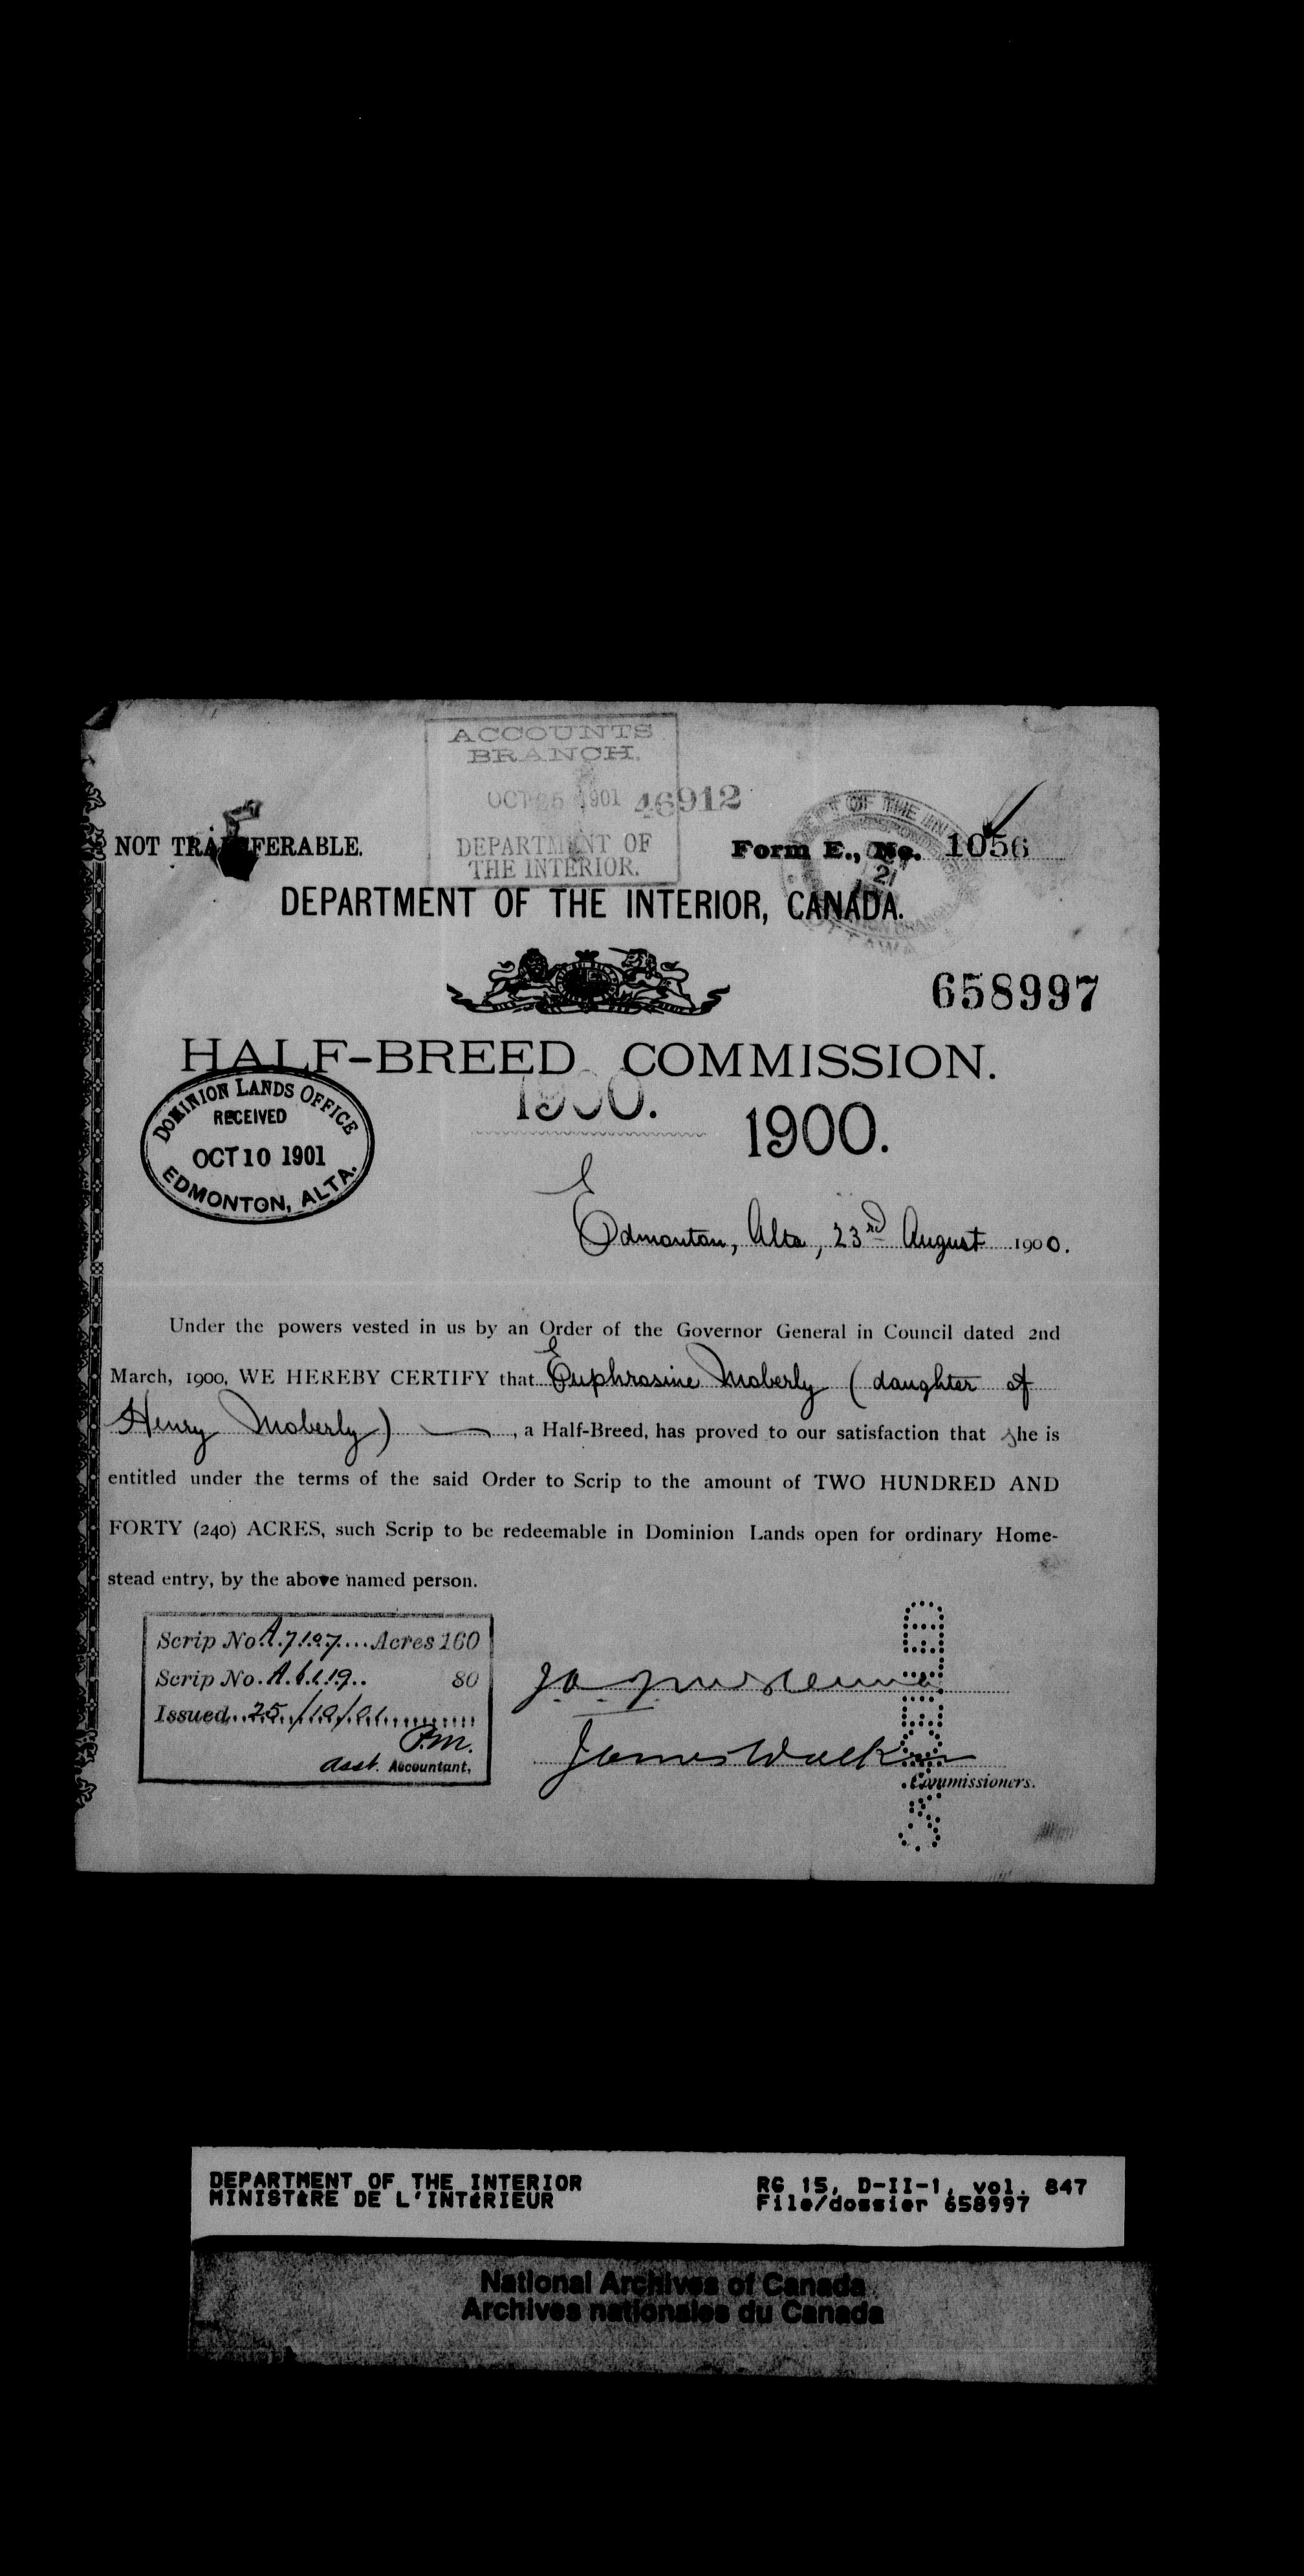 ACCOUNTS
BRANCH.
OCT 25 1901 46912
DEPARTMENT OF
THE INTERIOR.
NOT TRANSFERABLE.
Form E., No. 1056
21
DEPARTMENT OF THE INTERIOR, CANADA.
658997
HALF-BREED COMMISSION.
1900.
1900.
DOMINION LANDS OFFICE
RECEIVED
OCT 10 1901
EDMONTON, ALTA.
Edmonton, Alta, 23rd August 1900.
Under the powers vested in us by an Order of the Governor General in Council dated 2nd
March, 1900, WE HEREBY CERTIFY that Euphrasine Moberly (daughter of
Henry Moberly) , a Half-Breed, has proved to our satisfaction that she is
entitled under the terms of the said Order to Scrip to the amount of TWO HUNDRED AND
FORTY (240) ACRES, such Scrip to be redeemable in Dominion Lands open for ordinary Home-
stead entry, by the above named person.
Scrip No. A.7107 Acres 160
Scrip No. A. 80
Issued 25/10/01
P.M.
Asst. Accountant.
James Walker
Commissioners.
DEPARTMENT OF THE INTERIOR
MINISTÈRE DE L'INTÉRIEUR
RG 15, D-II-1, vol. 847
File/dossier 658997
National Archives of Canada
Archives nationales du Canada